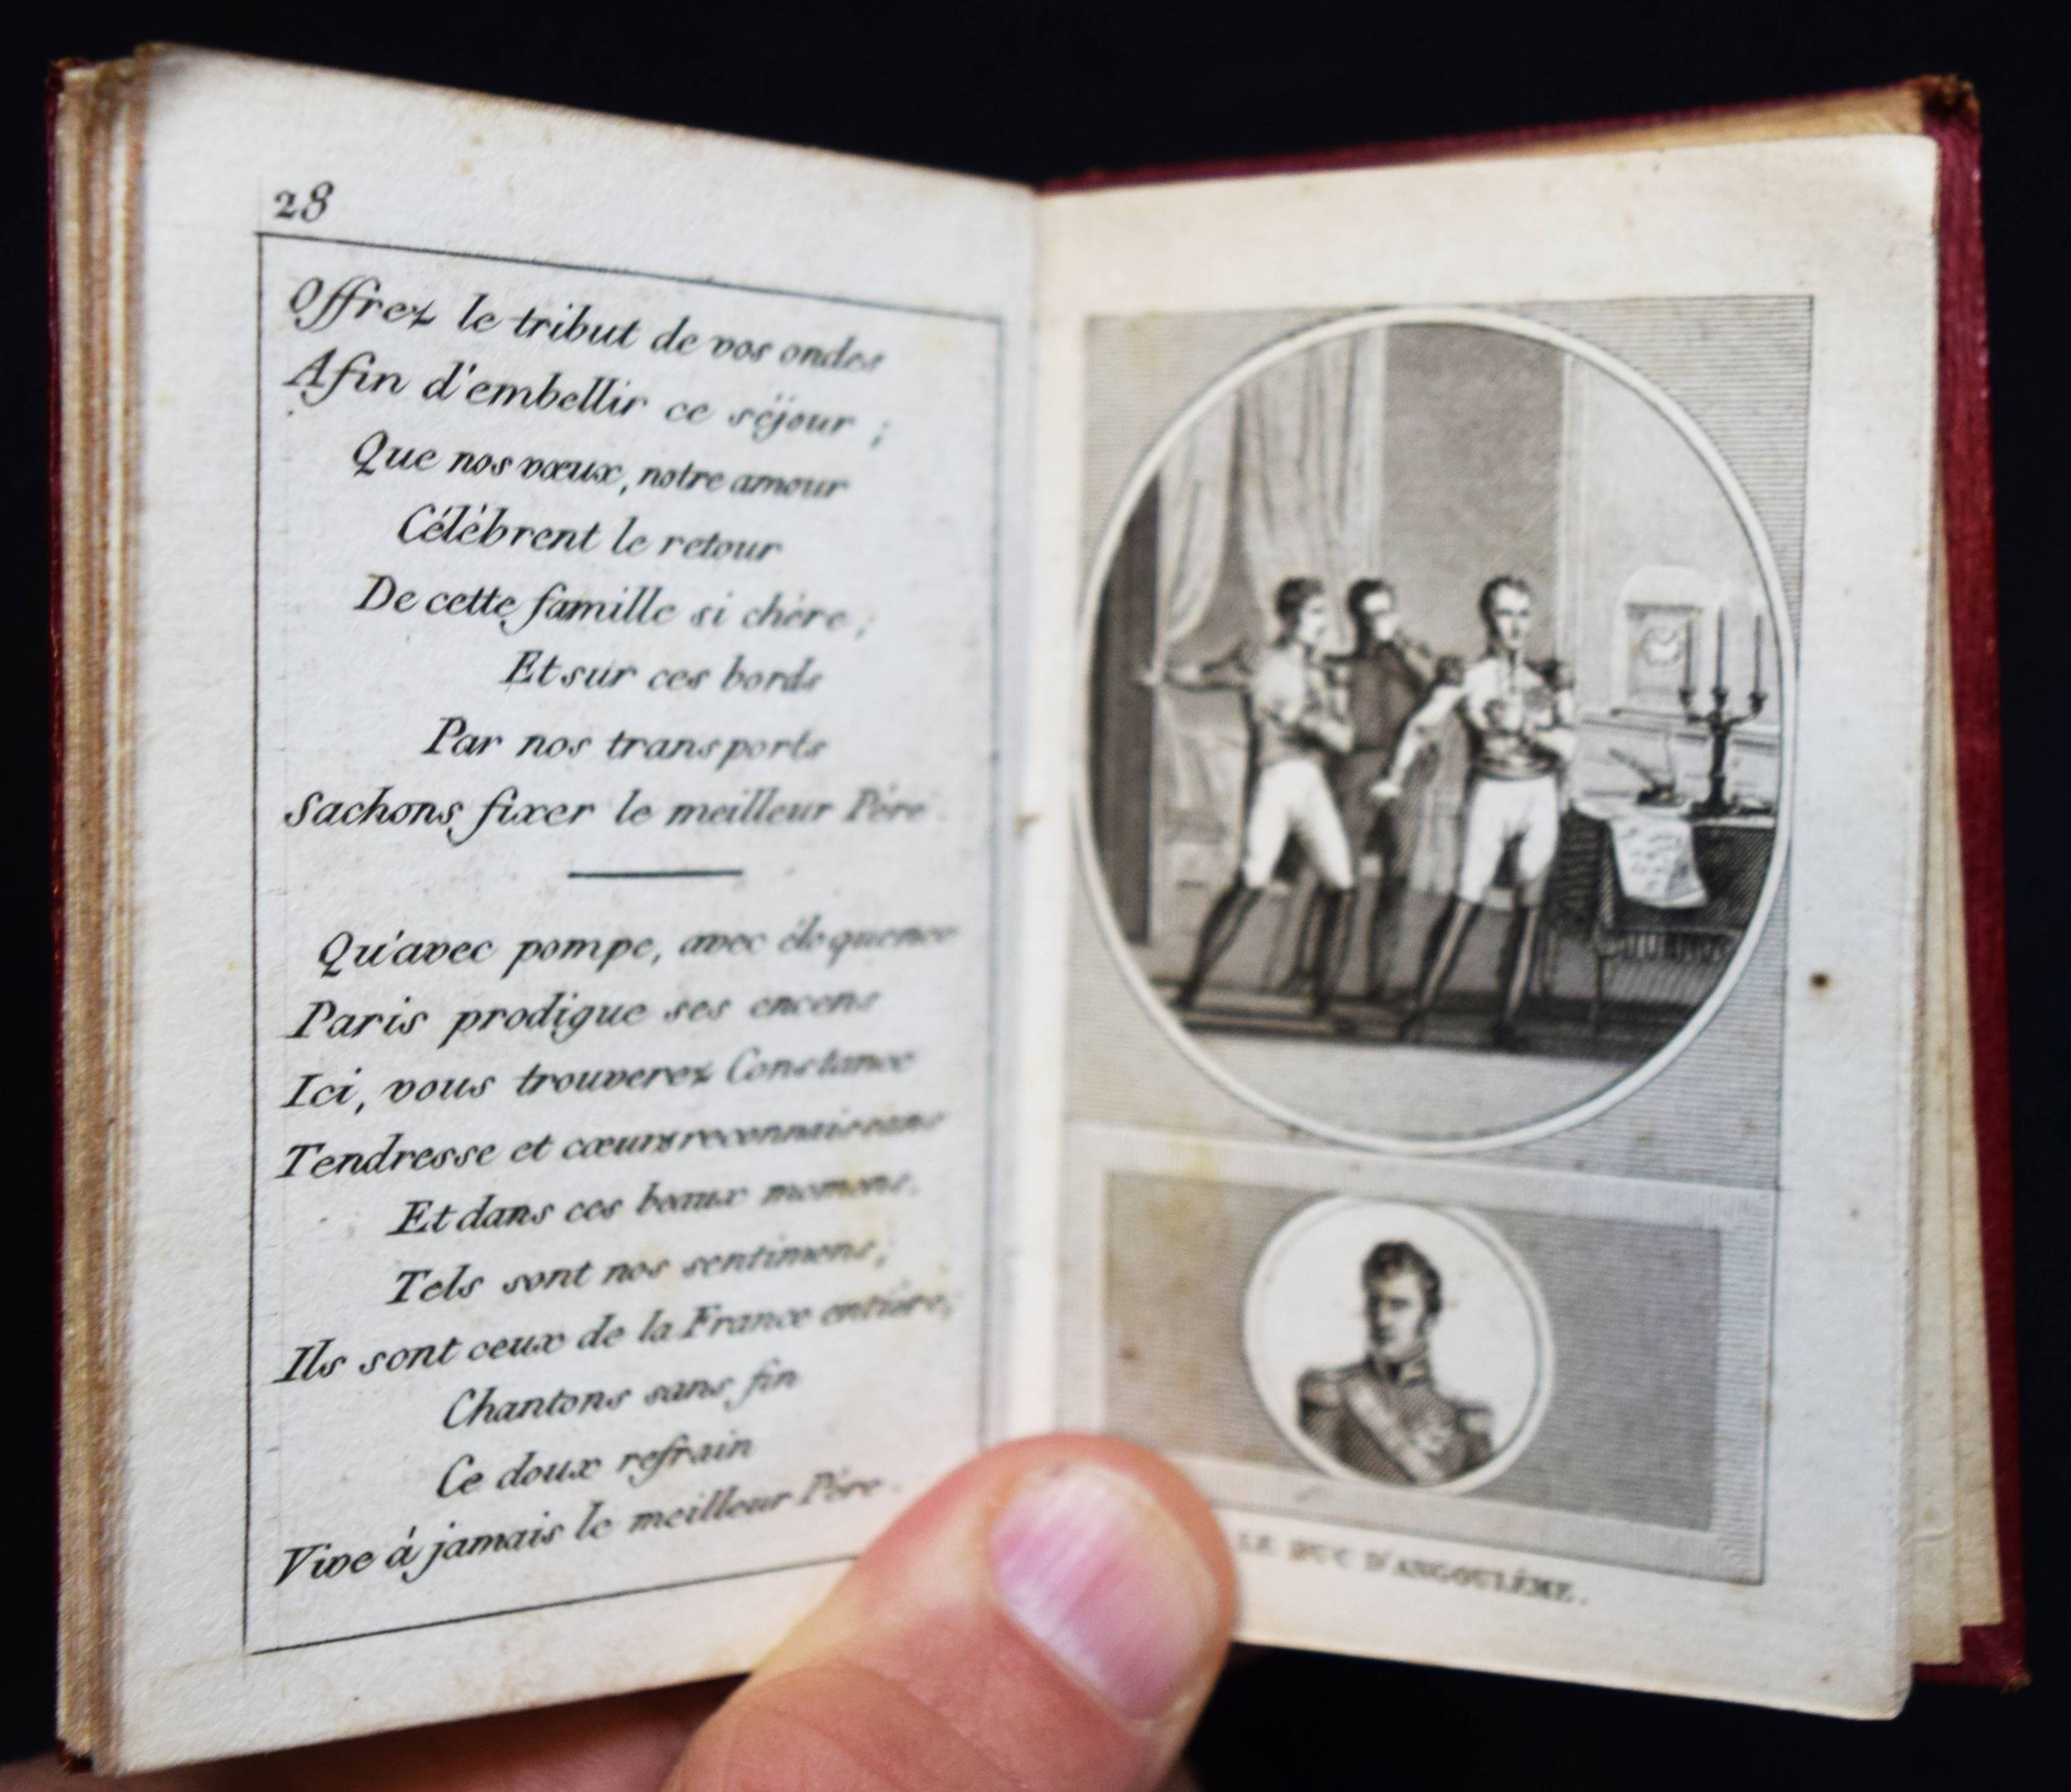 28
Offrez le tribut de vos ondes
Afin d'embellir ce séjour ;
Que nos vœux, notre amour
Célèbrent le retour
De cette famille si chère ;
Et sur ces bords
Par nos transports
Sachons fixer le meilleur Père.
Qu'avec pompe, avec éloquence
Paris prodigue ses encens
Ici, vous trouverez Constance
Tendresse et cœurs reconnaissans
Et dans ces beaux momens,
Tels sont nos sentimens ;
Ils sont ceux de la France entière,
Chantons sans fin
Ce doux refrain
Vive à jamais le meilleur Père.
LE DUC D'ANGOULÊME.